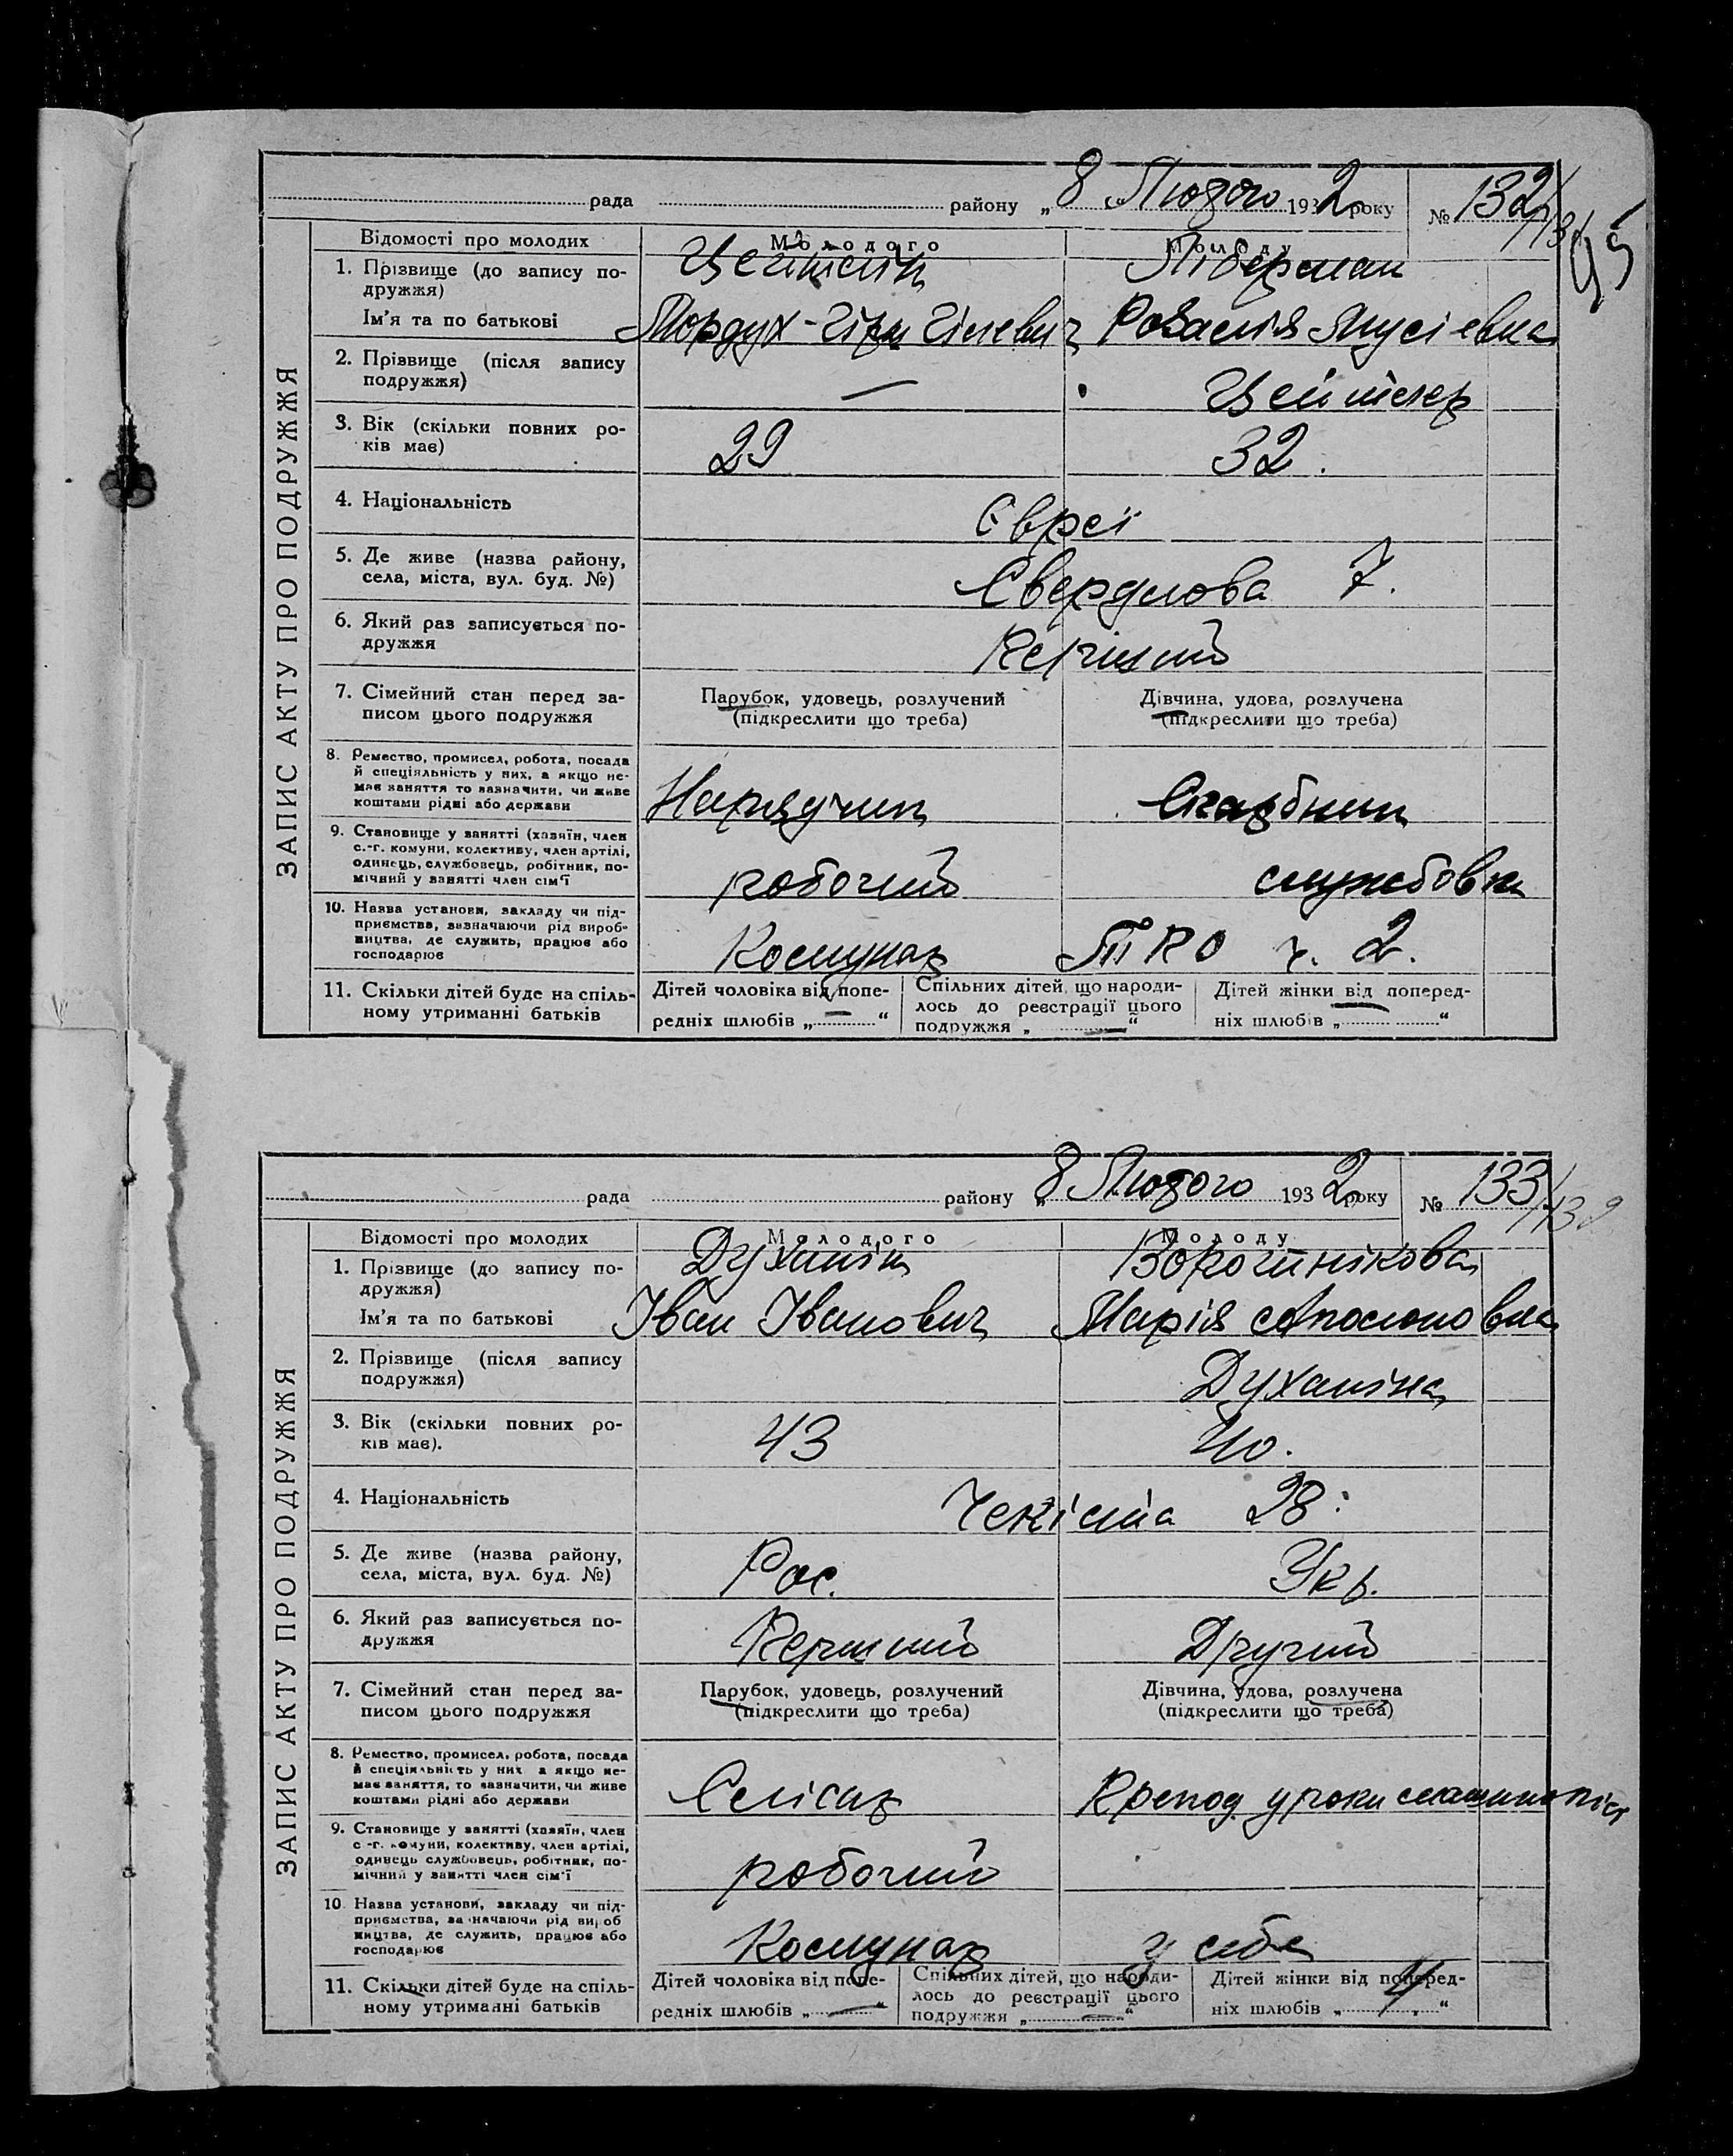 рада района „8“ Лютого 1932 року № 132/131
95
ЗАПИС АКТУ ПРО ПОДРУЖЖЯ
Відомості про молодих Молодого Молоду
1. Прізвище (до запису по- Цейтлін Ліберман
дружжя)
Ім'я та по батькові Мордух-Гірш Розалія Мусіевна
2. Прізвище (після запису — Цейтлер
подружжя)
3. Вік (скільки повних ро- 29 32.
ків має)
4. Національність Євреї
5. Де живе (назва району, Свердлова 7.
села, міста, вул. буд. №)
6. Який раз записується по- Перший
дружжя
7. Сімейний стан перед за- Парубок, удовець, розлучений Дівчина, удова, розлучена
писом цього подружжя (підкреслити що треба) (підкреслити що треба)
8. Ремество, промисел, робота, посада
й спеціяльність у них, а якщо не-
має заняття то зазначити, чи живе Нарядчик Скарбник
коштами рідні або держави
9. Становище у занятті (хазяїн, член
с.-г. комуни, колективу, член артілі,
одинець, службовець, робітник, по- робочий службовка
мічний у занятті член сім'ї
10. Назва установи, закладу чи під-
приємства, зазначаючи рід вироб-
ництва, де служить, працює або Комунар ТПО ч. 2.
господарює
11. Скільки дітей буде на спіль- Дітей чоловіка від попе- Спільних дітей, що народи- Дітей жінки від поперед-
ному утриманні батьків редніх шлюбів „—“ лось до реєстрації цього ніх шлюбів „—“
подружжя „—“
рада району „8 Лютого 1932 року № 133/132
ЗАПИС АКТУ ПРО ПОДРУЖЖЯ
Відомості про молодих Молодого Молоду
1. Прізвище (до запису по- Духанін Воротнікова
дружжя)
Ім'я та по батькові Іван Іванович Марія Аполоновна
2. Прізвище (після запису Духаніна
подружжя)
3. Вік (скільки повних ро- 43 40.
ків має).
4. Національність Чекіста 28.
5. Де живе (назва району, Рос. Укр.
села, міста, вул. буд. №)
6. Який раз записується по- Перший Другий
дружжя
7. Сімейний стан перед за- Парубок, удовець, розлучений Дівчина, удова, розлучена
писом цього подружжя (підкреслити що треба) (підкреслити що треба)
8. Ремество, промисел, робота, посада
й спеціяльність у них а якщо не-
має заняття, то зазначити, чи живе Слісар Препод. уроки
коштами рідні або держави
9. Становище у занятті (хазяїн, член
с-г. комуни, колективу, член артілі,
одинець службовець, робітник, по- робочий
мічний у занятті член сім'ї
10 Назва установи, закладу чи під-
приємства, зазначаючи рід вироб
ництва, де служить, працює або Комунар у себе
господарює
11. Скільки дітей буде на спіль- Дітей чоловіка від попе- Спільних дітей, що народи- Дітей жінки від поперед-
ному утриманні батьків редніх шлюбів „—“ лось до реєстрації цього ніх шлюбів „4“
подружжя „—“